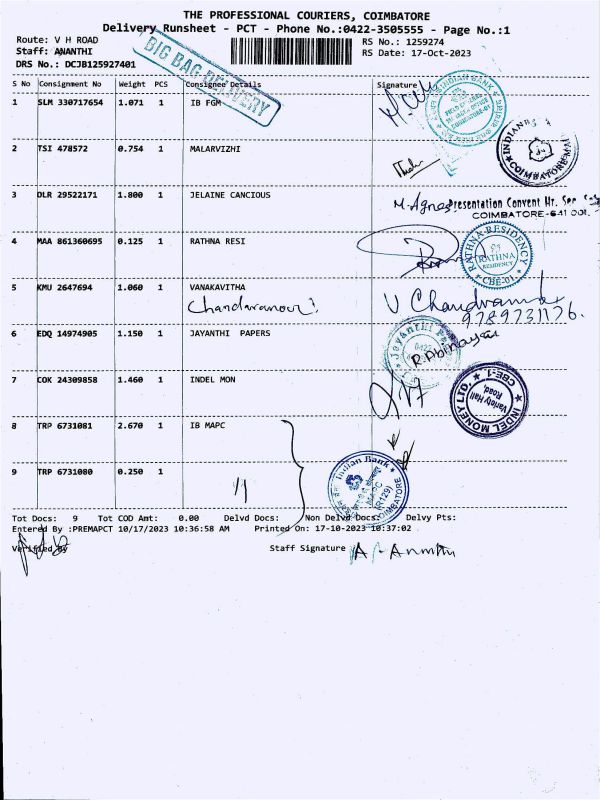 THE PROFESSIONAL COURIERS, COIMBATORE
Delivery Runsheet - PCT - Phone No.:0422-3505555 - Page No.:1
Route: V H ROAD RS No.: 1259274
Staff: ANANTHI RS Date: 17-Oct-2023
DRS No.: DCJB125927401
BIG BAG DELIVERY
S No Consignment No Weight PCS Consignee Details Signature
1 SLM 330717654 1.071 1 IB FGM
INDIAN BANK
2 TSI 478572 0.754 1 MALARVIZHI
INDIAN B
COIMBATORE MAI
3 DLR 29522171 1.800 1 JELAINE CANCIOUS
M. Agnes Presentation Convent Hr. Sec
COIMBATORE-641 001.
4 MAA 861360695 0.125 1 RATHNA RESI
RATHNA RESIDENCY
RATHNA
RESIDENCY
CBE-01
5 KMU 2647694 1.060 1 VANAKAVITHA
9789731176.
6 EDQ 14974905 1.150 1 JAYANTHI PAPERS
Jayanthi
R. Abinayasri
7 COK 24309858 1.460 1 INDEL MON
INDEL MONEY LTD.
Variety Hall
Road,
CBE-1
8 TRP 6731081 2.670 1 IB MAPC
9 TRP 6731080 0.250 1 "
Indian Bank
COIMBATORE
Tot Docs: 9 Tot COD Amt: 0.00 Delvd Docs: Non Delvd Docs: Delvy Pts:
Entered By :PREMAPCT 10/17/2023 10:36:58 AM Printed On: 17-10-2023 10:37:02
Verified By Staff Signature